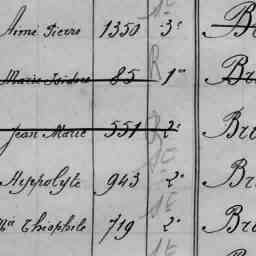 Aimé Pierre 1350 3e Br
Marie Isidore 85 1re Br
Jean Marie 551 2e Bro
Hyppolyte 943 2e Br
Théophile 719 2e Bro